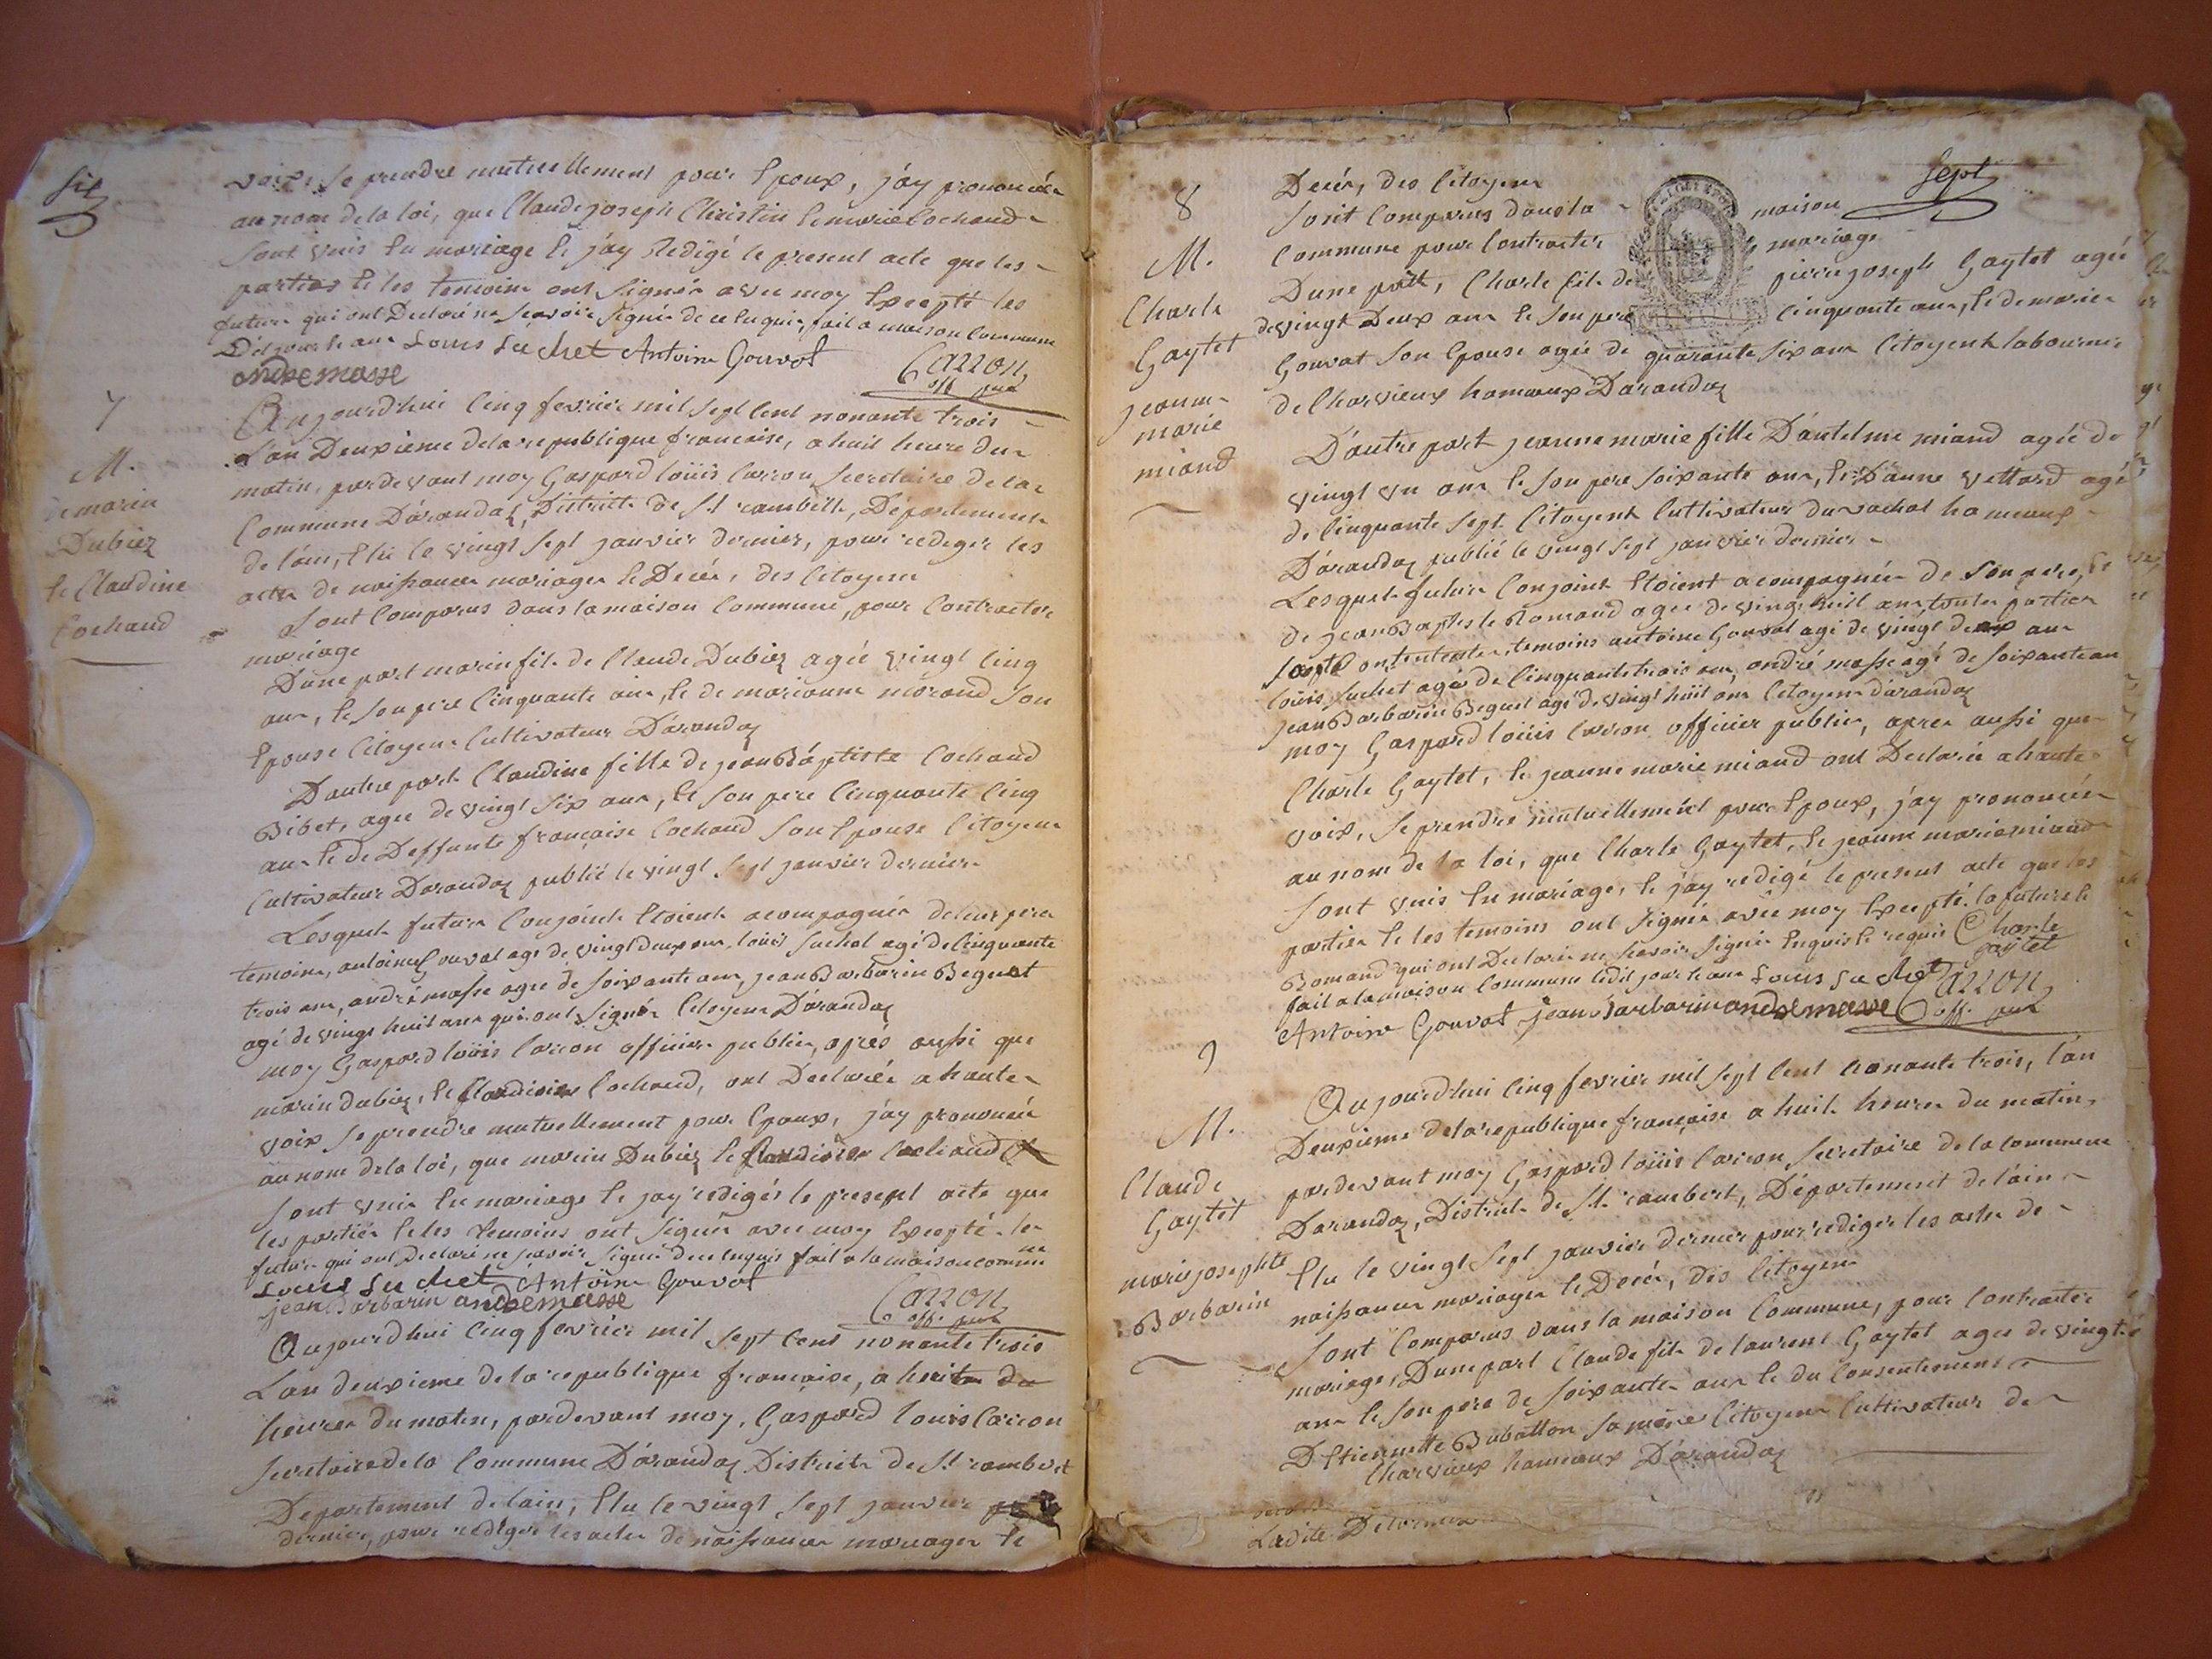 six
voix, se prendre mutuellement pour Epoux, j'ay prononcéz
au nom de la loi, que Claude joseph Christin Et marie Cochaud
sont unis En mariage Et j'ay Redigé le present acte que les
parties Et les temoins ont signés avec moy Excepté les
futurs qui ont Declaré ne scavoir signer de ce Enquis, fait a maison Commune
Dit jour Et an Louis Suchet Antoine Gouvat
andre masse Carron
off. pub
7
M.
de marin
Dubiez
Et Claudine
Cochaud
Aujourd'hui Cinq fevrier mil sept Cent nonante trois
L'an Deuxieme de la republique francaise, a huit heure du
matin, pardevant moy Gaspard loüis Carron secretaire de la
Commune D'arandaz, District de St rambert, Département
de l'ain, Elu le vingt sept janvier dernier, pour rediger les
actes de naissances mariages Et Decés, des Citoyens
Sont Comparus dans la maison Commune, pour Contracter
mariage
Dune part marin fils de Claude Dubiez agée vingt Cinq
ans, Et son pere Cinquante ans, Et de marianne morand son
Epouse Citoyens Cultivateur D'arandaz
Dautre part Claudine fille de jean Baptiste Cochaud
Bibet, agee de vingt six ans, Et son pere Cinquante Cinq
ans Et de Deffunte francaise Cochaud son Epouse Citoyens
Cultivateur Darandaz publié le vingt sept janvier dernier
Lesquels futurs Conjoints Etoient acompagnés de leur peres
temoins, antoine Gouvat age de vingt deux ans, louis suchet agé de Cinquante
trois ans, andré masse agee de soixante ans, jean Barbarin Beguet
agé de vingt huit ans qui ont signés Citoyens D'arandaz
moy Gaspard loüis Carron officier public, aprés aussi que
marin dubiez, Et Claudine Cochaud, ont Declarés a haute
voix se prendre mutuellement pour Epoux, j'ay prononcé
au nom de la loi, que marin Dubiez Et Claudine Cochaud
sont unis En mariage Et jay redigés le present acte que
les parties Et les temoins ont signés avec moy Excepté les
futurs qui ont Declaré ne scavoir signer de ce enquis fait a la maison commune
Louis Suchet Antoine Gouvat
jean Barbarin andre masse Carron
off. pub
Aujourdhui Cinq fevrier mil sept Cent nonante trois
L'an deuxieme de la republique francaise, a huit du
heures du matin, pardevant moy, Gaspard louis Carron
secretaire de la Commune D'arandaz District de St rambert
Departement de lain, Elu le vingt sept janvier
dernier, pour rediger les actes de naissances mariages Et
sept
8
M.
Charle
Gaytet
jeanne
marie
miand
Decés, des Citoyens
sont Comparus dans la maison
Commune pour Contracter mariage
Dune part, Charle fils de pierre joseph Gaytet agé
de vingt Deux ans Et son pere Cinquante ans, Et de marie
Gouvat son Epouse agée de quarante six ans Citoyens laboureur
de Charvieux hameaux D'arandaz
D'autre part jeanne marie fille D'antelme miand agée de
vingt un ans Et son pere soixante ans, Et D'anne vettard agé
de Cinquante sept Citoyens Cultivateur du vachat hameaux
D'arandaz publié le vingt sept janvier dernier
Lesquels futurs Conjoints Etoient acompagnés de son pere, Et
de jean Baptiste Romand agee de vingt huit ans,
temoins antoine Gouvat agé de vingt deux ans
loüis suchet agé de Cinquante trois ans, andré masse agé de soixante an
jean Barbarin Beguet agé de vingt huit ans Citoyens darandaz
moy Gaspard loüis Carron officier public, apres aussi que
Charle Gaytet, Et jeanne marie miand ont Declarés a haute
voix, se prendre mutuellement pour Epoux, j'ay prononcés
au nom de la loi, que Charle Gaytet, Et jeanne marie miand
sont unis En mariage, Et j'ay redigé le present acte que les
parties Et les temoins ont signés avec moy Excepté la future Et
Romand qui ont Declarés ne scavoir signer Enquis Et requis Charle
gaytet
fait a la maison Commune ledit jour Et an Louis Suchet
Antoine Gouvat jean Barbarin andre masse Carron
off. pub
9
M.
Claude
Gaytet
marie josephte
Barbarin
Aujourdhui Cinq fevrier mil sept Cent nonante trois, l'an
Deuxieme de la republique française a huit heures du matin,
pardevant moy Gaspard loüis Carron secretaire de la Commune
Darandaz, District de St rambert, Département de l'ain
Elu le vingt sept janvier dernier pour rediger les actes de
naissances mariages Et Decés, des Citoyens
Sont Comparus dans la maison Commune, pour Contracter
mariage, Dune part Claude fils de laurent Gaytet agee de vingt
ans Et son pere de soixante ans Et du Consentement
D'Etiennette Babollon sa mere Citoyens Cultivateur de
Charvieux hameaux D'arandaz
Ladite